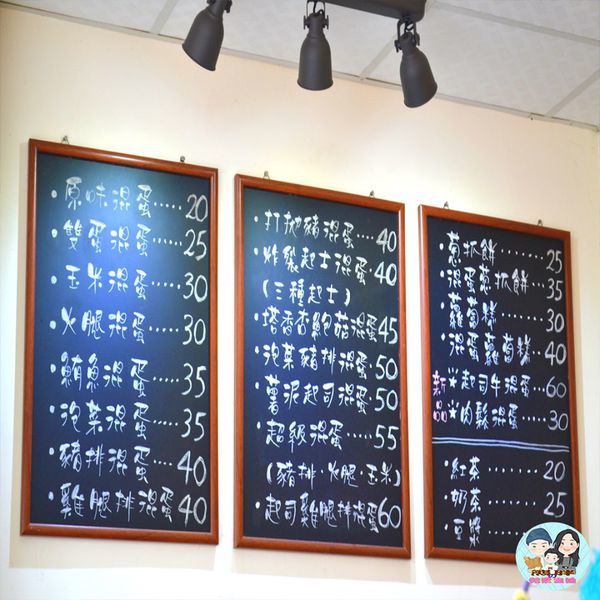 ·原味混蛋.....20
·雙蛋混蛋.....25
·玉米混蛋.....30
·火腿混蛋.....30
·鮪魚混蛋.....35
·泡菜混蛋.....35
·豬排混蛋.....40
·雞腿排混蛋.....40
·打拋豬混蛋...40
·炸裂起士混蛋.40
(三種起士)
·塔香杏鮑菇混蛋45
·泡菜豬排混蛋.50
·薯泥起司混蛋.50
·超級混蛋.....55
(豬排·火腿·玉米)
·起司雞腿排混蛋60
·蔥抓餅........25
·混蛋蔥抓餅...35
·蘿蔔糕.......30
·混蛋蘿蔔糕...40
新品
☆起司牛混蛋..60
☆肉鬆混蛋....30
·紅茶.......20
·奶茶.......25
·豆漿